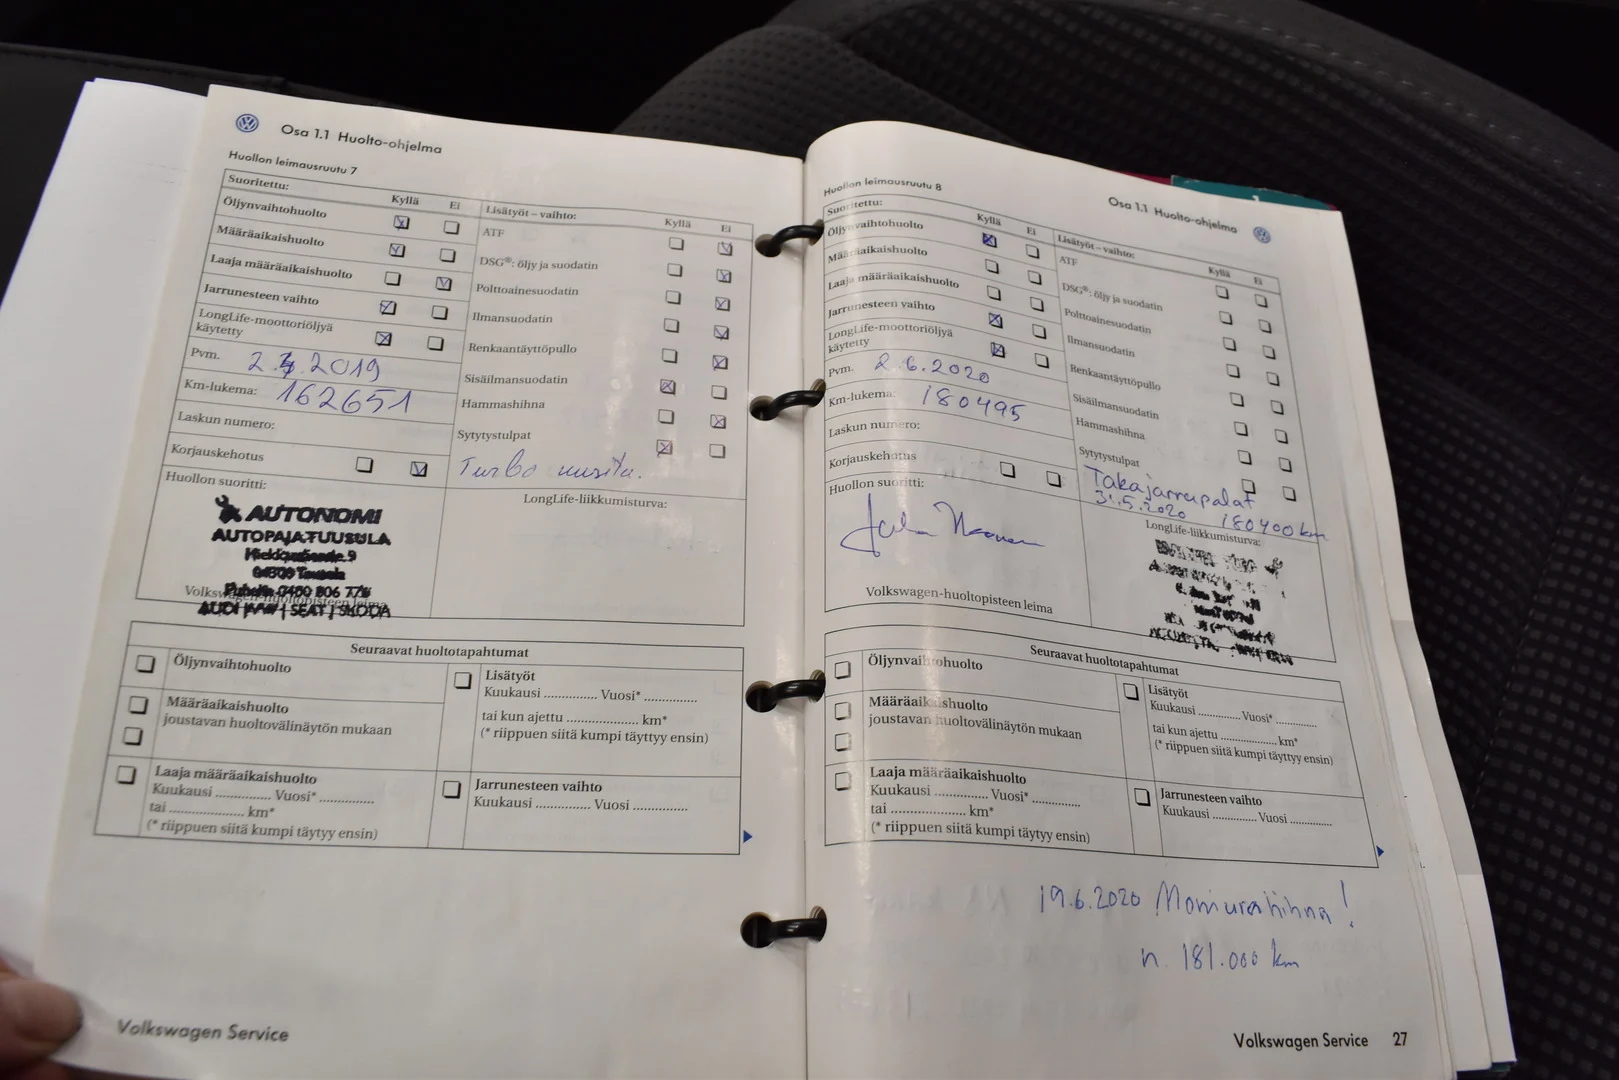 Osa 1.1 Huolto-ohjelma
Huollon leimausruutu 7
Suoritettu:
Kyllä Ei
Öljynvaihtohuolto
Määräaikaishuolto
Laaja määräaikaishuolto
Jarrunesteen vaihto
LongLife-moottoriöljyä
käytetty
Pvm. 2. .2019
Km-lukema: 162651
Laskun numero:
Korjauskehotus
Huollon suoritti:
AUTONOMI
AUTOPAJA TUUSULA
04300 Tuusula
Volkswagen-huoltopisteen leima
AUDI | VW | SEAT | SKODA
Lisätyöt – vaihto:
Kyllä Ei
ATF
DSG®: öljy ja suodatin
Polttoainesuodatin
Ilmansuodatin
Renkaantäyttöpullo
Sisäilmansuodatin
Hammashihna
Sytytystulpat
Turbo uusittu.
LongLife-liikkumisturva:
Seuraavat huoltotapahtumat
Öljynvaihtohuolto
Määräaikaishuolto
joustavan huoltovälinäytön mukaan
Laaja määräaikaishuolto
Kuukausi .............. Vuosi* ..............
tai ..................... km*
(* riippuen siitä kumpi täytyy ensin)
Lisätyöt
Kuukausi .............. Vuosi* ..............
tai kun ajettu .................. km*
(* riippuen siitä kumpi täyttyy ensin)
Jarrunesteen vaihto
Kuukausi .............. Vuosi ..............
Volkswagen Service
Osa 1.1 Huolto-ohjelma
Huollon leimausruutu 8
Suoritettu:
Kyllä Ei
Öljynvaihtohuolto
Määräaikaishuolto
Laaja määräaikaishuolto
Jarrunesteen vaihto
LongLife-moottoriöljyä
käytetty
Pvm. 2.6.2020
Km-lukema: 180495
Laskun numero:
Korjauskehotus
Huollon suoritti:
Volkswagen-huoltopisteen leima
Lisätyöt – vaihto:
Kyllä Ei
ATF
DSG®: öljy ja suodatin
Polttoainesuodatin
Ilmansuodatin
Renkaantäyttöpullo
Sisäilmansuodatin
Hammashihna
Sytytystulpat
Takajarrupalat
31.5.2020 180400 km
LongLife-liikkumisturva:
Seuraavat huoltotapahtumat
Öljynvaihtohuolto
Määräaikaishuolto
joustavan huoltovälinäytön mukaan
Laaja määräaikaishuolto
Kuukausi .............. Vuosi* ..............
tai ..................... km*
(* riippuen siitä kumpi täytyy ensin)
Lisätyöt
Kuukausi .............. Vuosi* ..............
tai kun ajettu .................. km*
(* riippuen siitä kumpi täyttyy ensin)
Jarrunesteen vaihto
Kuukausi .............. Vuosi ..............
19.6.2020 Moniurahihna!
n. 181.000 km
Volkswagen Service 27